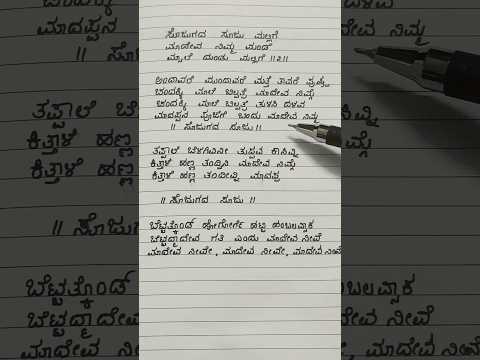 ಸೋಜುಗದ ಸೂಜು ಮಲ್ಲಿಗೆ
ಮಾದೇವ ನಿಮ್ಮ ಮಂಡೆ
ಮ್ಯಾಲೆ ದುಂಡು ಮಲ್ಲಿಗೆ ||೨||
ಅಂದಾವರೆ ಮುಂದಾವರೆ ಮತ್ತೆ ತಾವರೆ ಪುಷ್ಪ
ಚಂದಕ್ಕಿ ಮಾಲೆ ಬಿಲ್ಪತ್ರೆ ಮಾದೇವ ನಿಮ್ಗೆ
ಚಂದಕ್ಕಿ ಮಾಲೆ ಬಿಲ್ಪತ್ರೆ ತುಳಸಿ ದಳವ
ಮಾದಪ್ಪನ ಪೂಜೆಗೆ ಬಂದು ಮಾದೇವ ನಿಮ್ಮ
|| ಸೋಜುಗದ ಸೂಜು ||
ತಪ್ಪಾಲೆ ಬೆಳಗಿವ್ನೀ ತುಪ್ಪವ ಕಾಸಿವ್ನಿ
ಕಿತ್ತಾಳೆ ಹಣ್ಣ ತಂದಿವ್ನಿ ಮಾದೇವ ನಿಮ್ಗೆ
ಕಿತ್ತಾಳೆ ಹಣ್ಣ ತಂದೀವ್ನಿ ಮಾದಪ್ಪ
|| ಸೋಜುಗದ ಸೂಜು ||
ಬೆಟ್ಟತ್ಕೊಂಡ್ ಹೋಗೋರ್ಗೆ ಹಟ್ಟಿ ಹಂಬಲವ್ಯಾಕ
ಬೆಟ್ಟದ್ಮಾದೇವ ಗತಿ ಎಂದು ಮಾದೇವ ನೀವೆ
ಮಾದೇವ ನೀವೇ, ಮಾದೇವ ನೀವೇ, ಮಾದೇವ ನೀವೇ